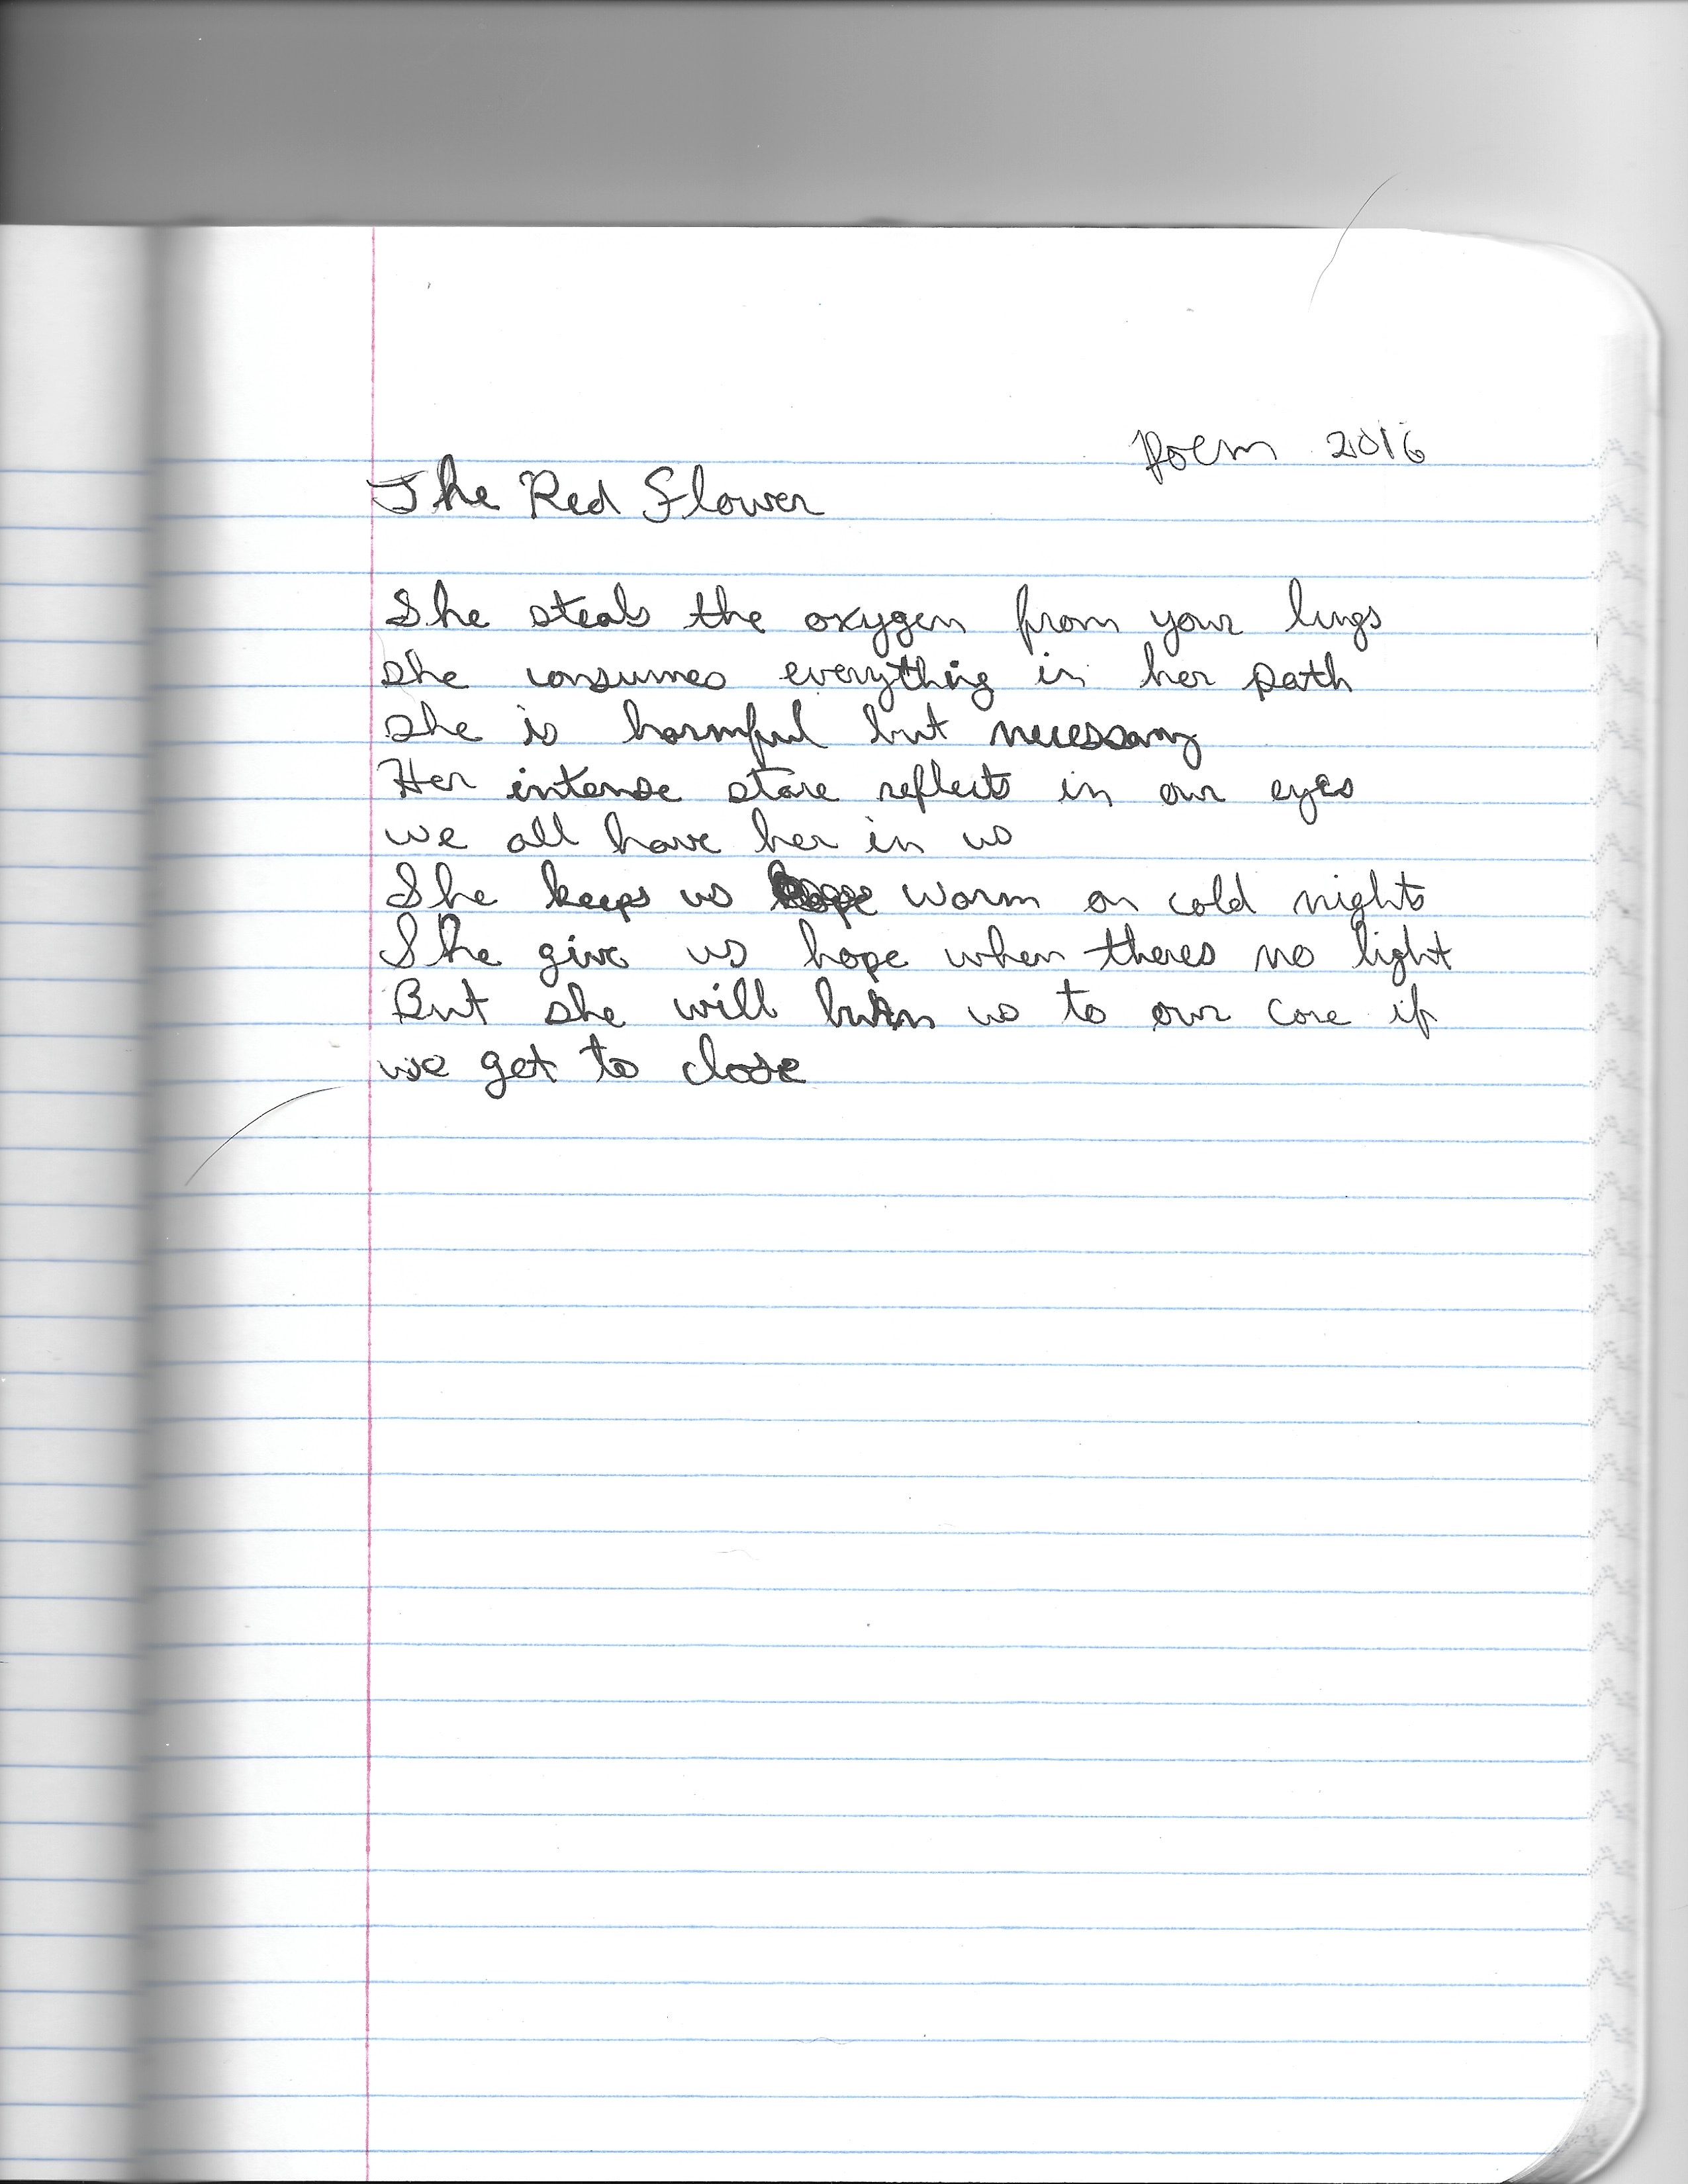 poem 2016
The Red Flower
She steals the oxygen from your lungs
she consumes everything in her path
she is harmful but necessary
Her intense stare reflects in our eyes
we all have her in us
She keeps us warm on cold nights
She give us hope when theres no light
But she will burn us to our core if
we get to close